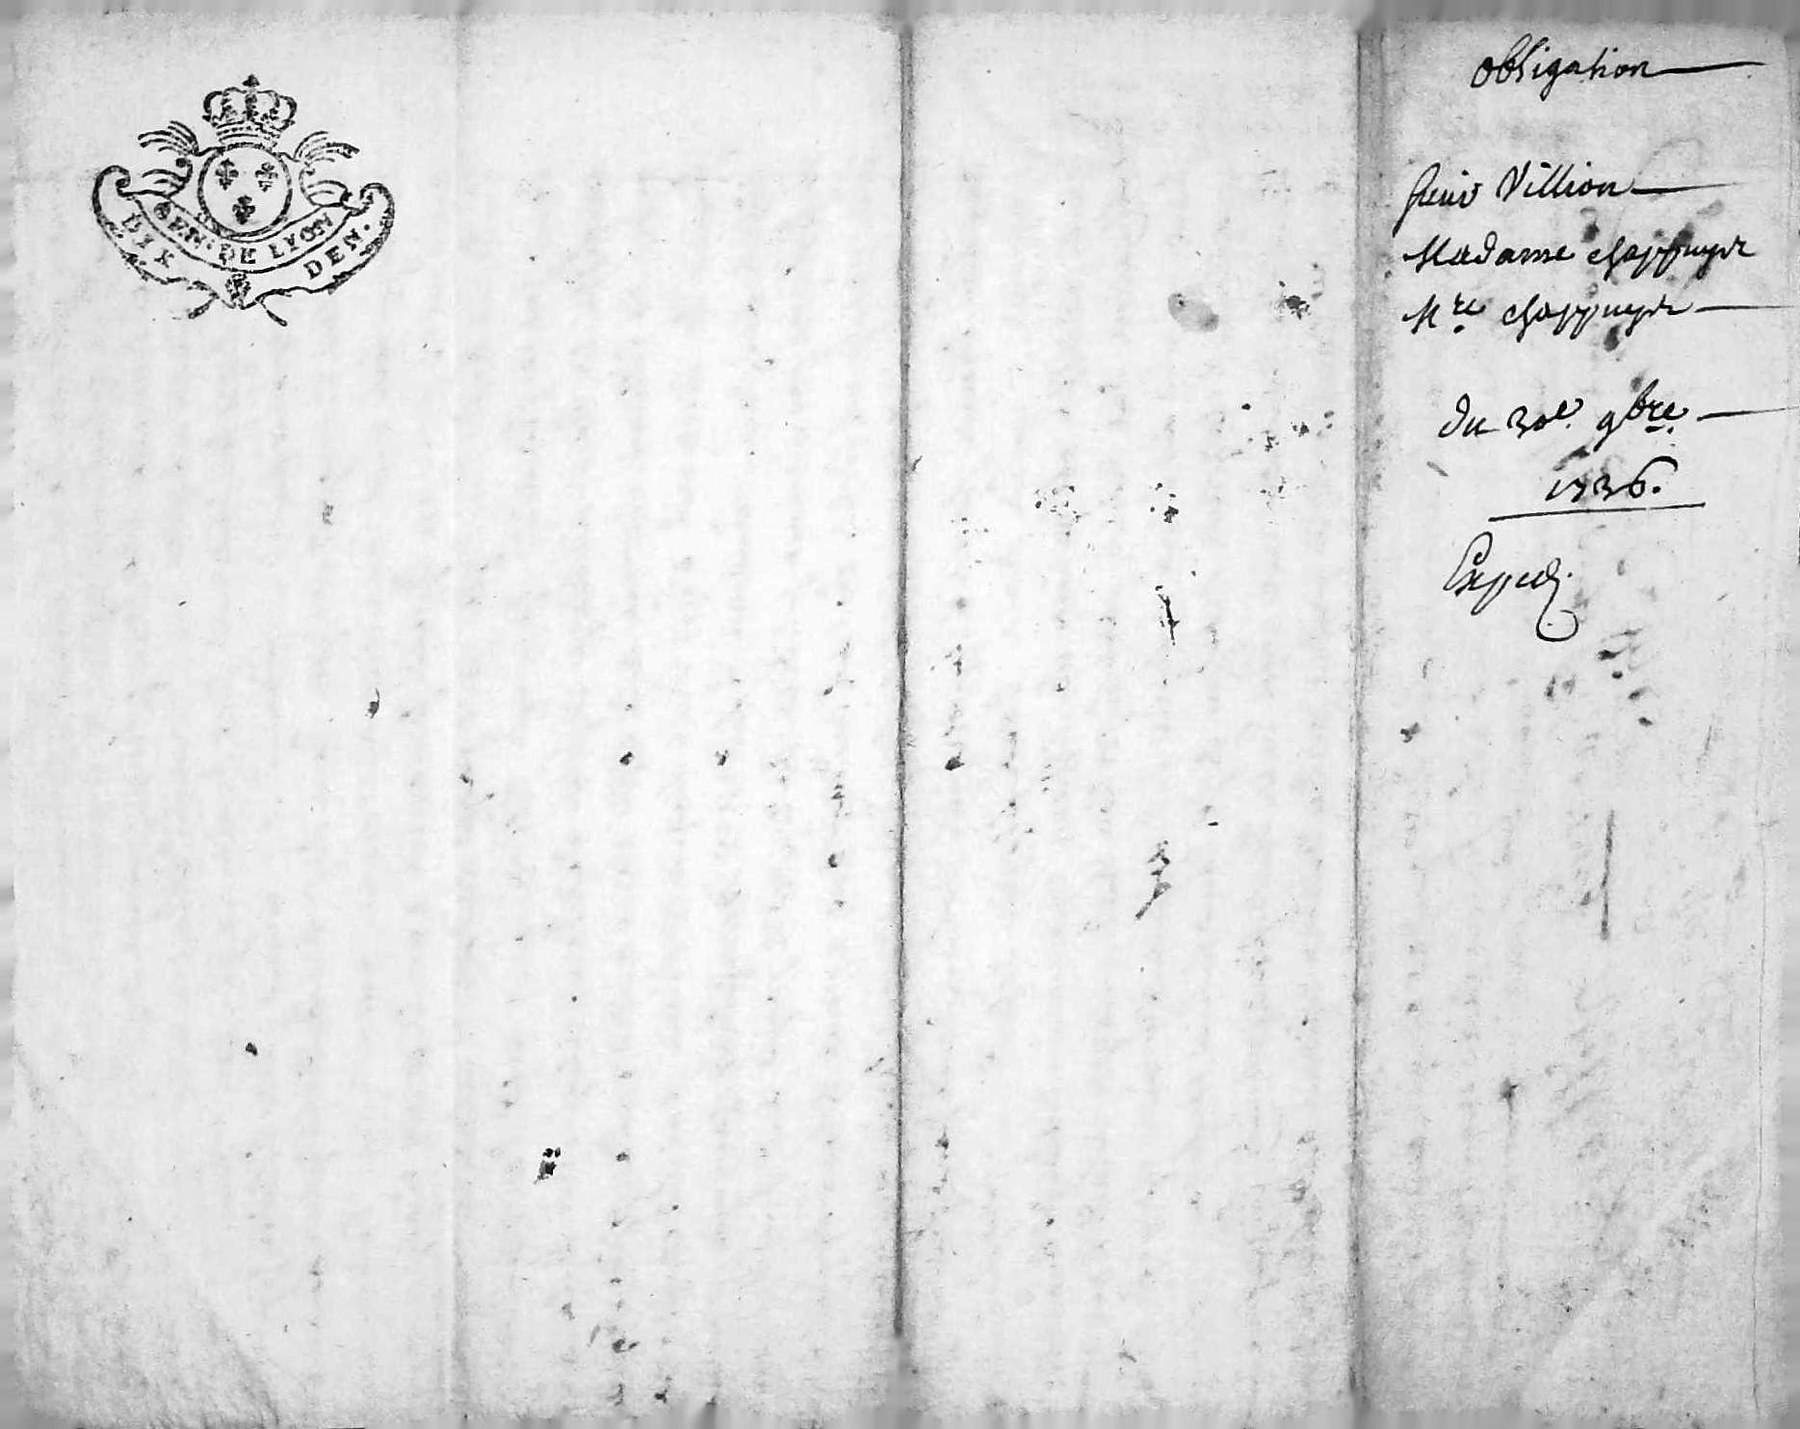 GEN. DE LYON
DIX DEN.
Obligation
sieur Villion
Madame chappuys
Mre chappuys
du 30e. 9bre.
1736.
Exped.